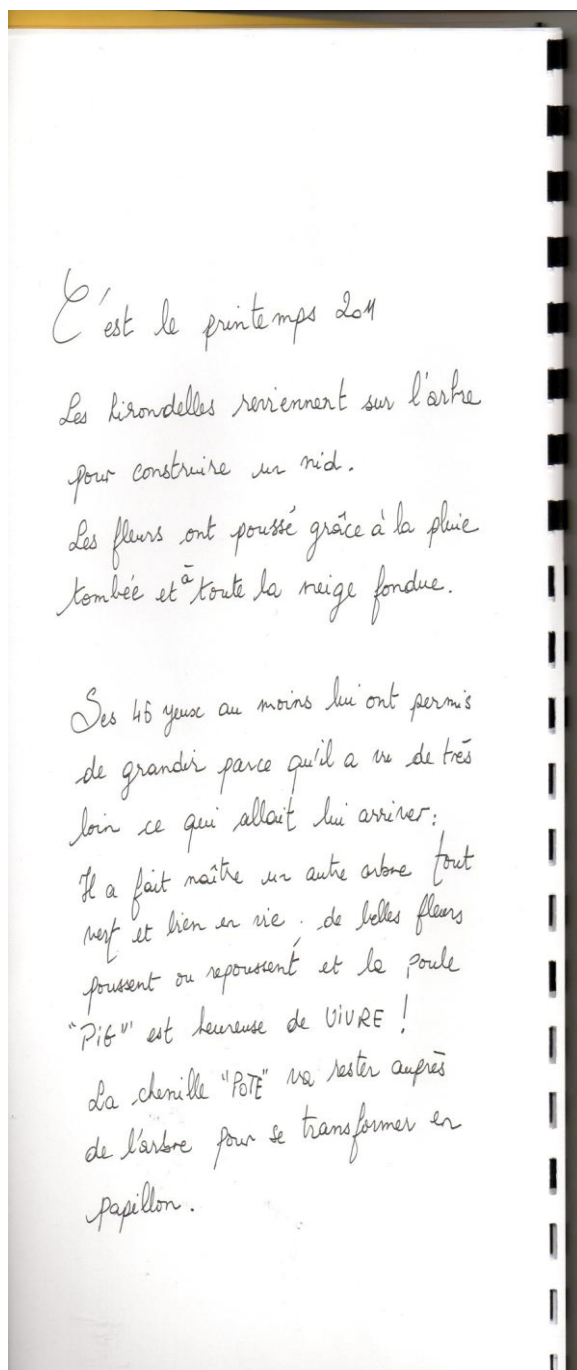 C'est le printemps 2011
Les hirondelles reviennent sur l'arbre
pour construire un nid.
Les fleurs ont poussé grâce à la pluie
tombée et à toute la neige fondue.
Ses 46 yeux au moins lui ont permis
de grandir parce qu'il a vu de très
loin ce qui allait lui arriver :
Il a fait naître un autre arbre tout
vert et bien en vie . de belles fleurs
poussent ou repoussent et la poule
"PiG" est heureuse de ViVRE !
La chenille "POTE" va rester auprès
de l'arbre pour se transformer en
papillon.